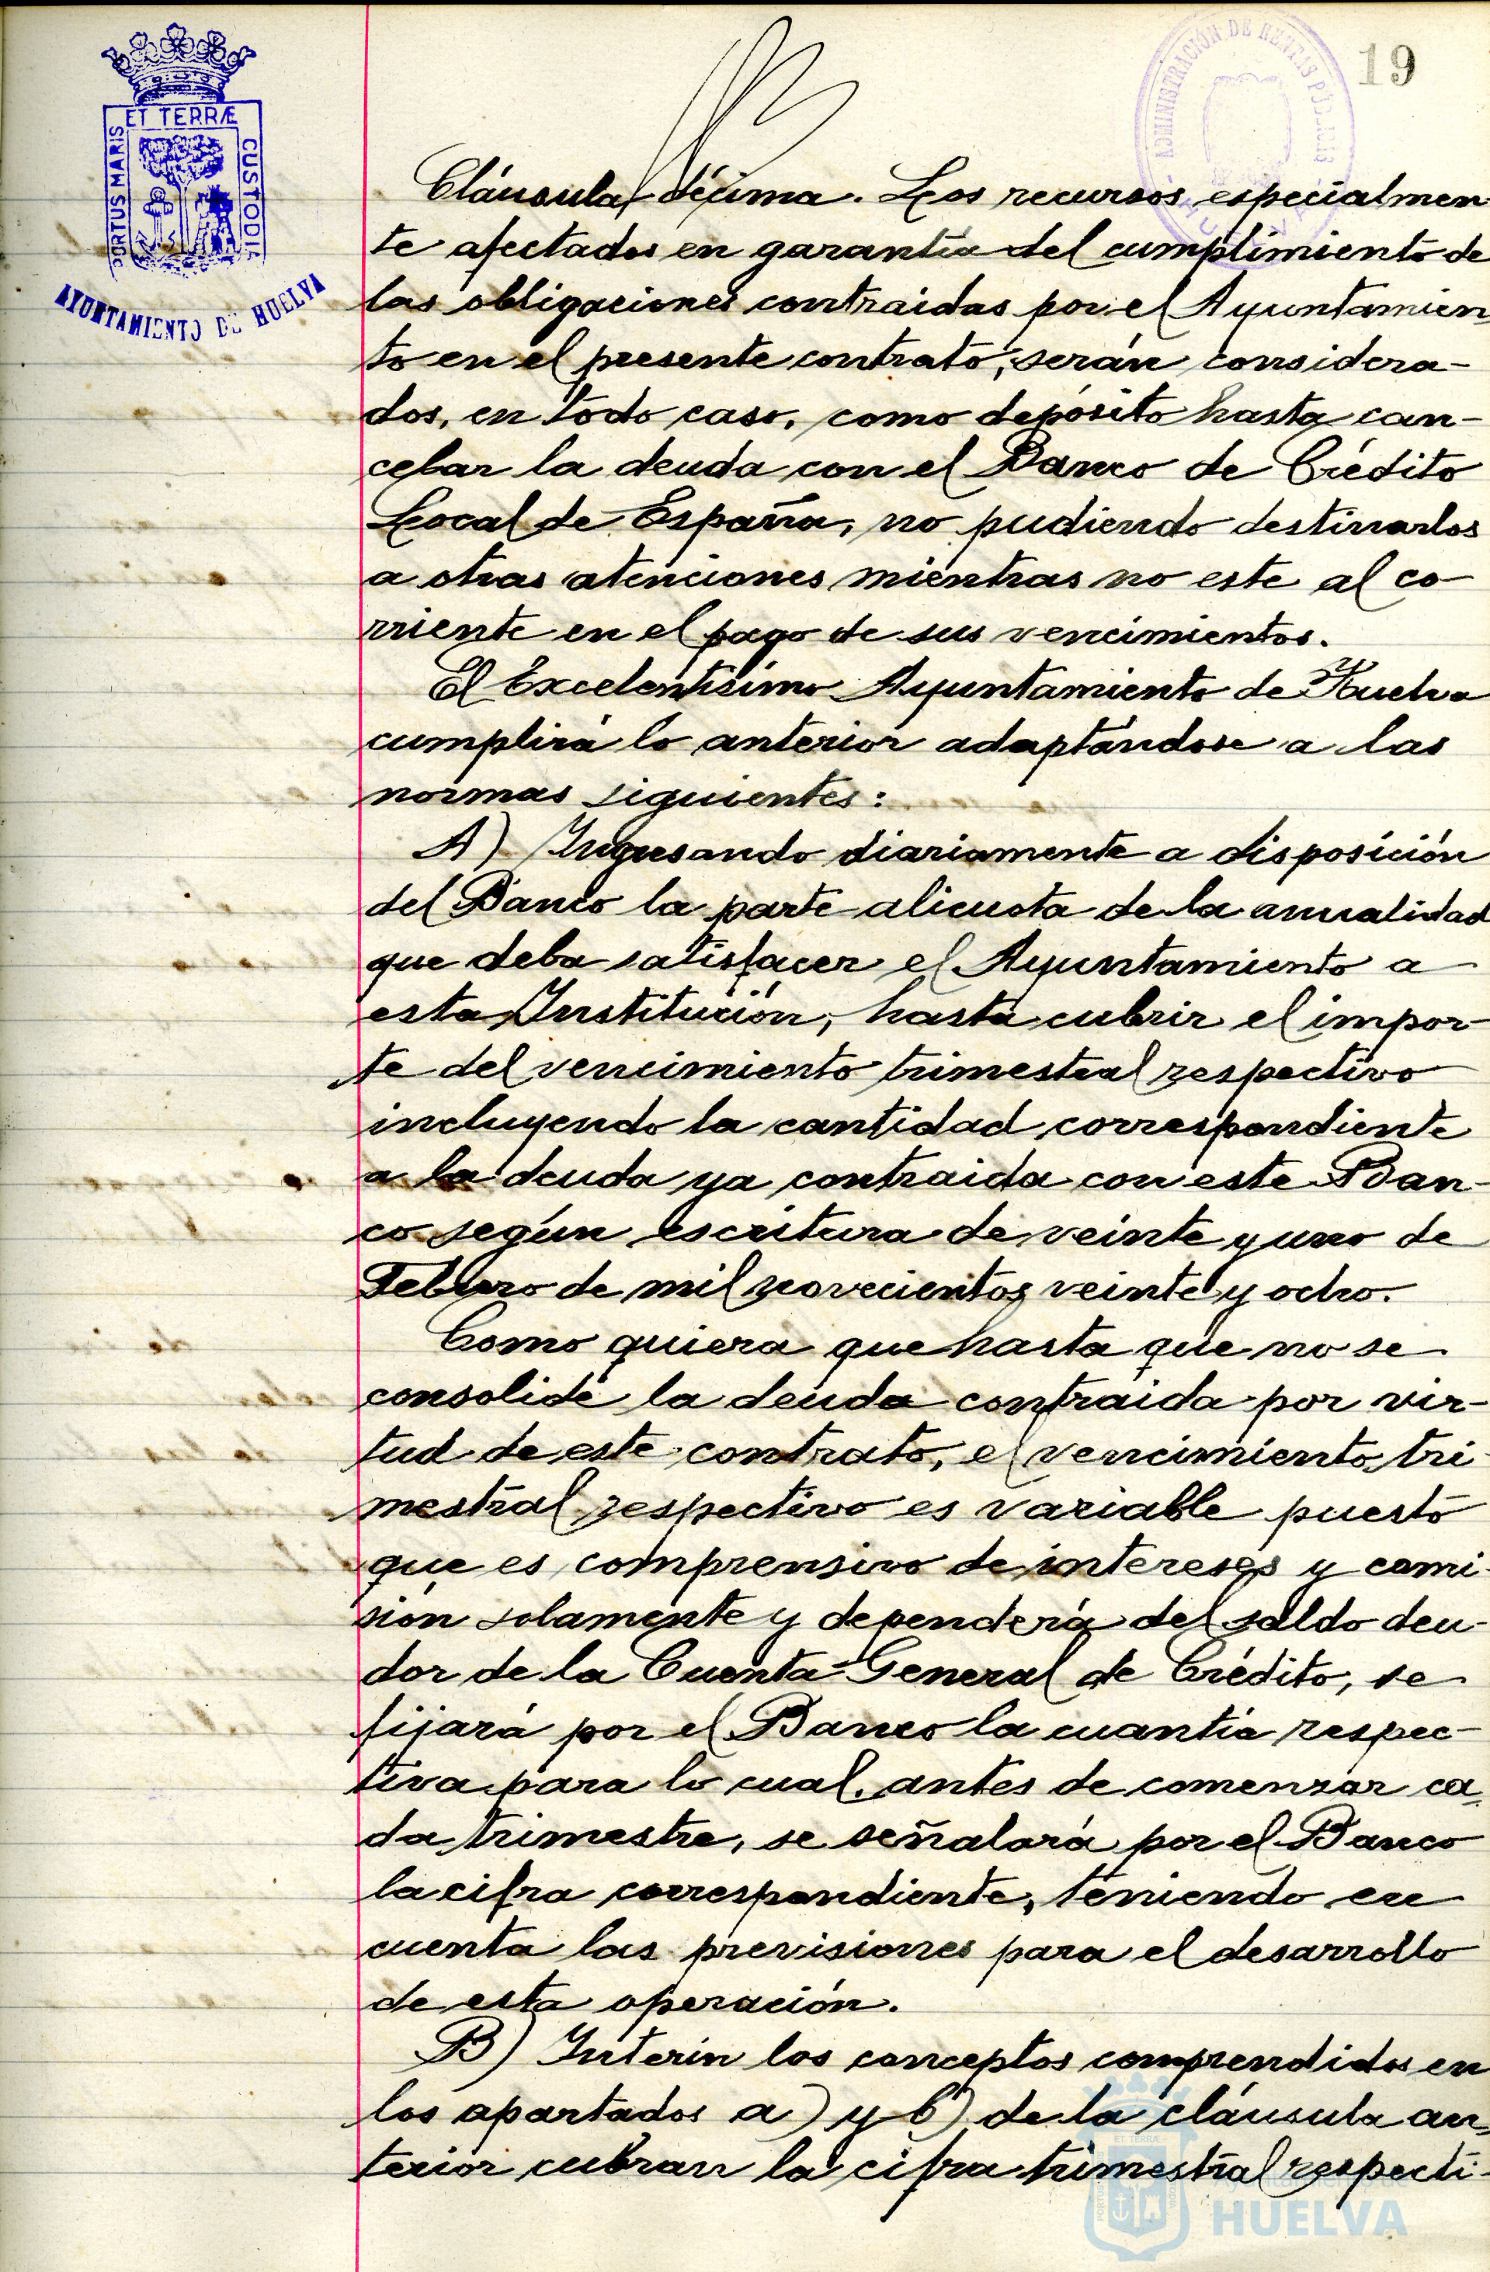 19
ADMINISTRACIÓN DE RENTAS PÚBLICAS
HUELVA
PORTUS MARIS
ET TERRÆ
CUSTODIA
AYUNTAMIENTO DE HUELVA
Cláusula décima. Los recursos especialmen
te afectados en garantía del cumplimiento de
las obligaciones contraidas por el Ayuntamien-
to en el presente contrato, serán considera-
dos, en todo caso, como depósito hasta can-
celar la deuda con el Banco de Crédito
Local de España, no pudiendo destinarlos
a otras atenciones mientras no este al co-
rriente en el pago de sus vencimientos.
El Excelentísimo Ayuntamiento de Huelva
cumplirá lo anterior adaptándose a las
normas siguientes:
A) Ingresando diariamente a disposición
del Banco la parte alicuota de la anualidad
que deba satisfacer el Ayuntamiento a
esta Institución, hasta cubrir el impor-
te del vencimiento trimestral respectivo
incluyendo la cantidad correspondiente
a la deuda ya contraida con este Ban-
co según escritura de veinte y uno de
Febrero de mil novecientos veinte y ocho.
Como quiera que hasta que no se
consolide la deuda contraida por vir-
tud de este contrato, el vencimiento tri-
mestral respectivo es variable puesto
que es comprensivo de intereses y comi-
sión solamente y dependerá del saldo deu-
dor de la Cuenta General de Crédito, se
fijará por el Banco la cuantía respec-
tiva para lo cual, antes de comenzar ca-
da trimestre, se señalará por el Banco
la cifra correspondiente, teniendo en
cuenta las previsiones para el desarrollo
de esta operación.
B) Interin los conceptos comprendidos en
los apartados a) y b) de la cláusula an-
terior cubran la cifra trimestral respecti-
Ayuntamiento de
HUELVA